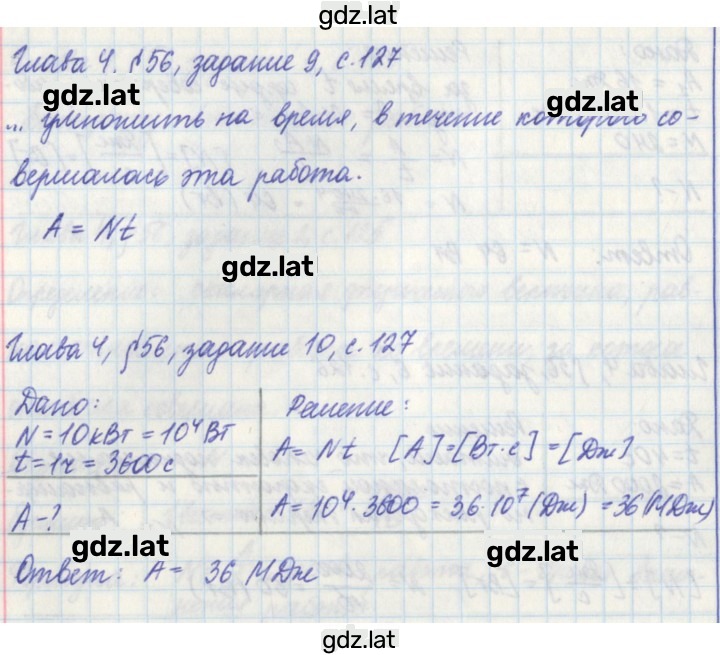 gdz.lat
Глава 4. §56, задание 9, с.127
gdz.lat
gdz.lat
... умножить на время, в течение которого со-
вершалась эта работа.
A = Nt
gdz.lat
Глава 4, §56, задание 10, с.127
Дано:
N = 10кВт = 10⁴Вт
t = 1ч = 3600с
A - ?
Решение:
A = Nt [A] = [Вт·с] = [Дж]
A = 10⁴ · 3600 = 3,6 · 10⁷ (Дж) = 36 (МДж)
gdz.lat
gdz.lat
Ответ: A = 36 МДж
gdz.lat